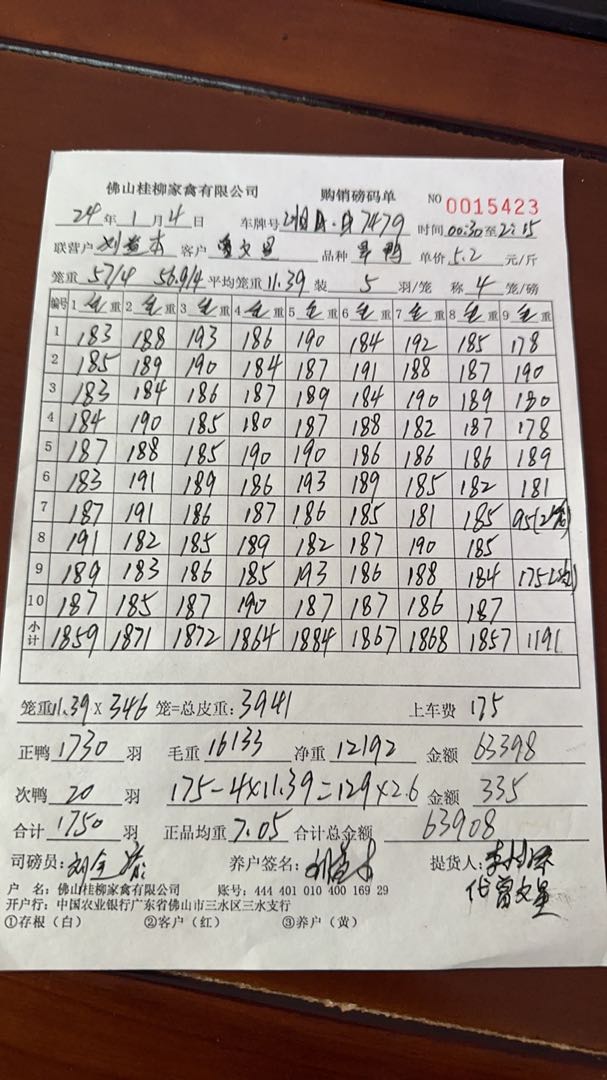 佛山桂柳家禽有限公司 购销磅码单 NO 0015423
24年1月4日 车牌号 7479 时间00:30至2:15
联营户 客户 品种 鸭 单价5.2元/斤
笼重57/4 56.9/4 平均笼重11.39 装5羽/笼 称4笼/磅
编号 1 重 2 重 3 重 4 重 5 重 6 重 7 重 8 重 9 重
1 183 188 193 186 190 184 192 185 178
2 185 189 190 184 187 191 188 187 190
3 183 184 186 187 189 184 190 189 180
4 184 190 185 180 187 188 182 187 178
5 187 188 185 190 190 186 186 186 189
6 183 191 189 186 193 189 185 182 181
7 187 191 186 187 186 185 181 185 95(2笼)
8 191 182 185 189 182 187 190 185
9 189 183 186 185 193 186 188 184 175
10 187 185 187 190 187 187 186 187
小计 1859 1871 1872 1864 1884 1867 1868 1857 1191
笼重11.39×346笼=总皮重:3941 上车费175
正鸭1730羽 毛重16133 净重12192 金额63398
次鸭20羽 175-4×11.39=129×2.6 金额335
合计1750羽 正品均重7.05 合计总金额63908
司磅员: 养户签名: 提货人:
代曾文星
户 名:佛山桂柳家禽有限公司 账号:444 401 010 400 169 29
开户行:中国农业银行广东省佛山市三水区三水支行
①存根(白) ②客户(红) ③养户(黄)